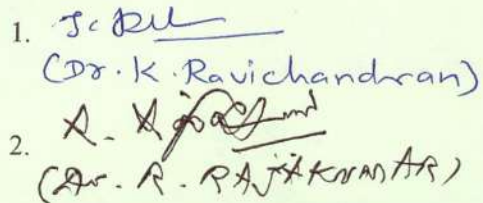 1.
(Dr. K. Ravichandran)
2.
(Dr. R. RAJAKUMAR)